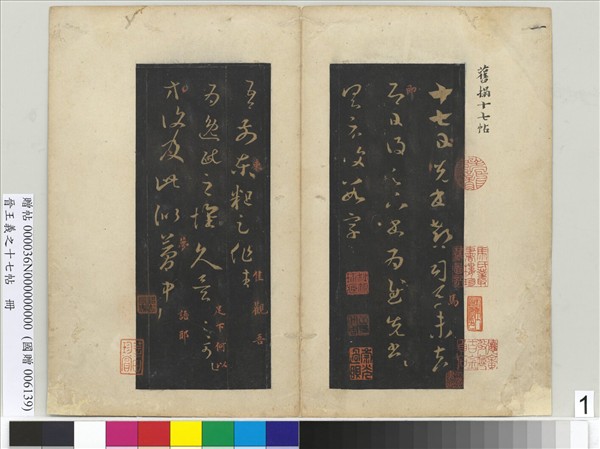 舊搨十七帖
十七日先書郗司馬未去
即日得足下書為慰先書以
具示復數字
吾前東粗足作佳觀吾
為逸民之懷久矣足下何以方
復及此似夢中語耶
贈帖 000036N000000000 (國贈 006139)
晉王羲之十七帖 冊
1